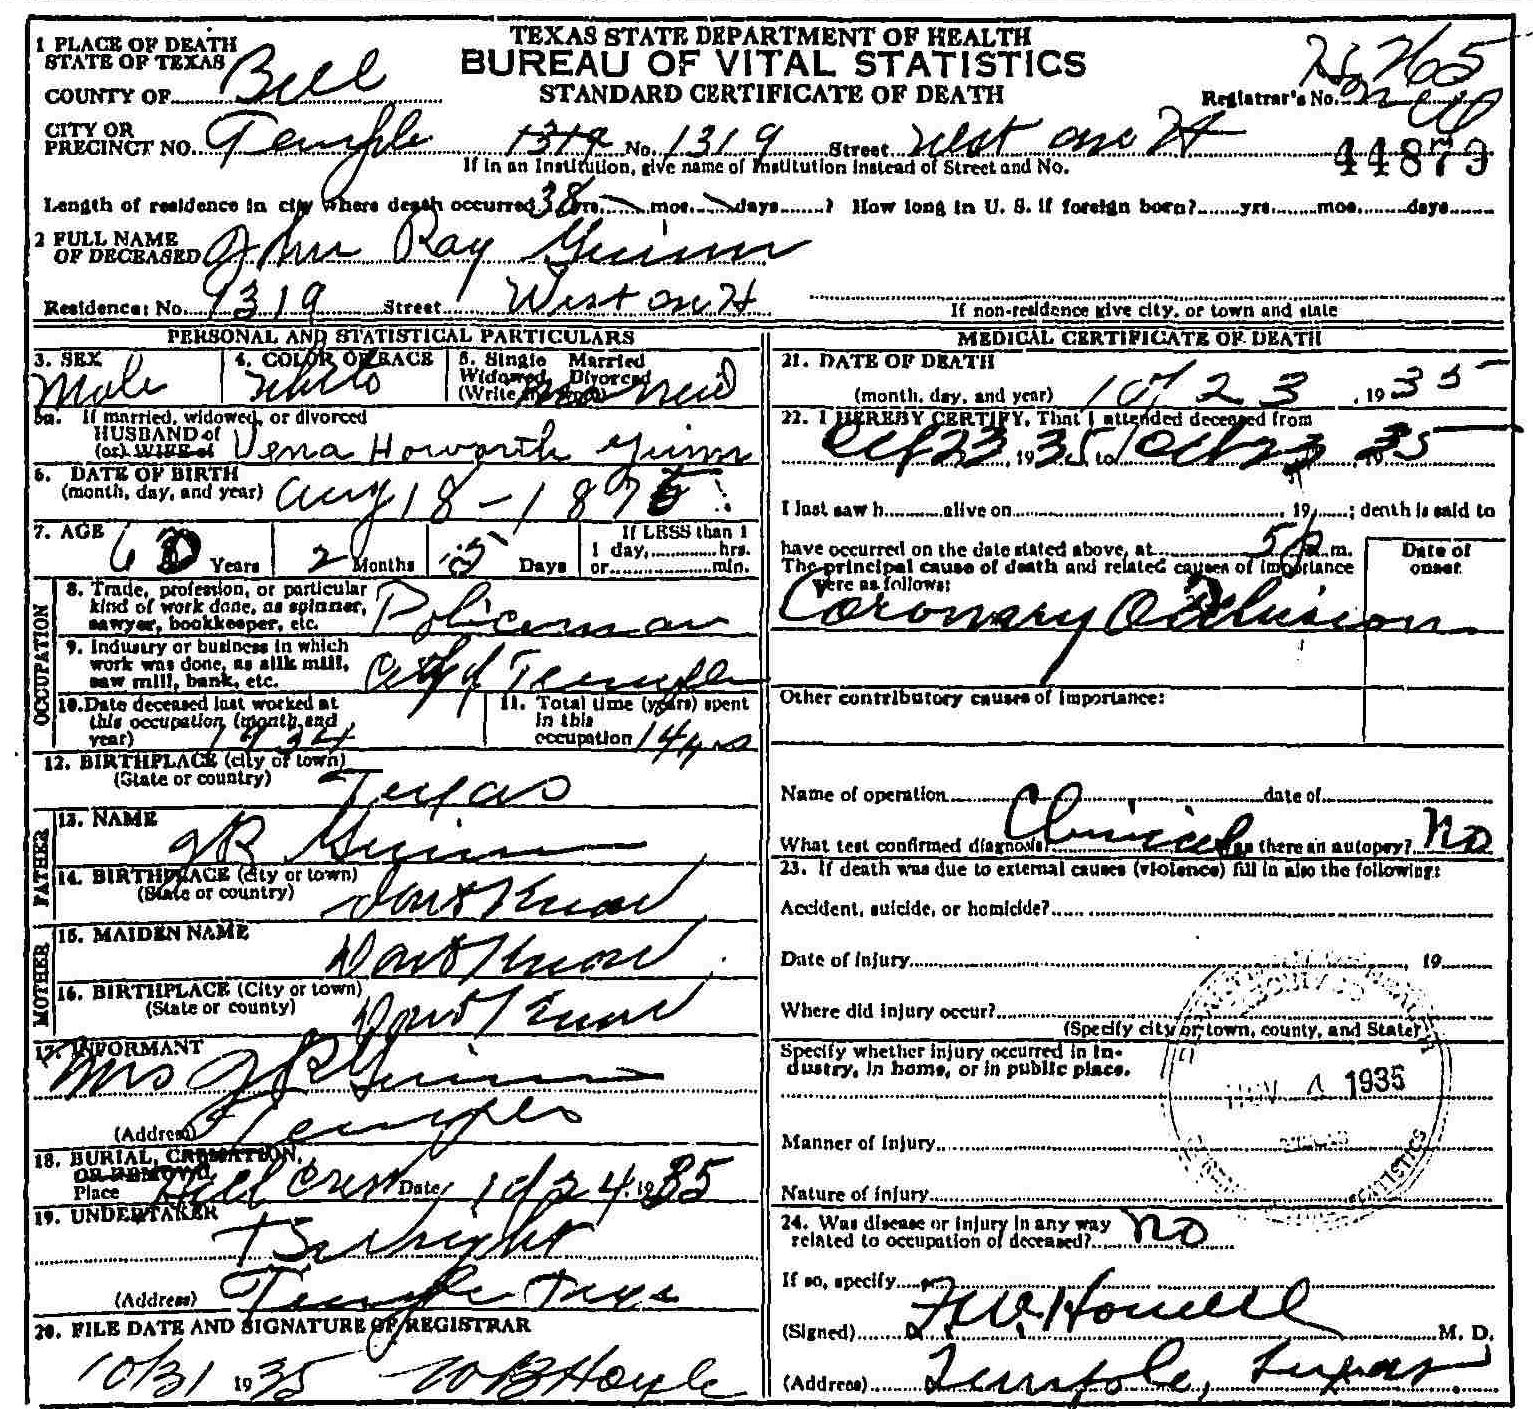 TEXAS STATE DEPARTMENT OF HEALTH
BUREAU OF VITAL STATISTICS
STANDARD CERTIFICATE OF DEATH
1 PLACE OF DEATH
STATE OF TEXAS
COUNTY OF Bell
Registrar's No. 265
CITY OR
PRECINCT NO. Temple 1319 No. 1319 Street West ave H
44879
If in an Institution, give name of Institution instead of Street and No.
Length of residence in city where death occurred 38 yrs. mos. days ? How long in U. S. if foreign born? yrs. mos. days
2 FULL NAME
OF DECEASED John Ray Guinn
Residence: No. 1319 Street West ave H
If non-residence give city, or town and state
PERSONAL AND STATISTICAL PARTICULARS
3. SEX Male
4. COLOR OR RACE White
5. Single Married
Widowed Divorced
(Write married
5a. If married, widowed, or divorced
HUSBAND of
(or) WIFE of Vena Howorth Guinn
6. DATE OF BIRTH
(month, day, and year) Aug 18 - 1875
7. AGE 60 Years 2 Months 5 Days
If LESS than 1
1 day, hrs.
or min.
OCCUPATION
8. Trade, profession, or particular
kind of work done, as spinner,
sawyer, bookkeeper, etc. Policeman
9. Industry or business in which
work was done, as silk mill,
saw mill, bank, etc. City of Temple
10. Date deceased last worked at
this occupation (month and
year) 1934
11. Total time (years) spent
in this
occupation 14 yrs
12. BIRTHPLACE (city or town)
(State or country) Texas
FATHER
13. NAME JR Guinn
14. BIRTHPLACE (city or town)
(State or country) Dont Know
MOTHER
15. MAIDEN NAME Dont Know
16. BIRTHPLACE (City or town)
(State or county) Dont Know
17. INFORMANT
Mrs JR Guinn
(Address) Temple
18. BURIAL, CREMATION,
OR REMOVAL
Place Hill Crest Date 10/24, 1935
19. UNDERTAKER
Wright
(Address) Temple Texas
20. FILE DATE AND SIGNATURE OF REGISTRAR
10/31 1935 WB Hoyle
MEDICAL CERTIFICATE OF DEATH
21. DATE OF DEATH
(month, day, and year) 10/23, 1935
22. I HEREBY CERTIFY, That I attended deceased from
Oct 23, 1935 to Oct 23, 1935
I last saw h alive on , 19 ; death is said to
have occurred on the date stated above, at 5 p. m.
The principal cause of death and related causes of importance
were as follows:
Date of
onset
Coronary Occlusion
Other contributory causes of importance:
Name of operation date of
What test confirmed diagnosis? Clinical Was there an autopsy? No
23. If death was due to external causes (violence) fill in also the following:
Accident, suicide, or homicide?
Date of injury , 19
Where did injury occur?
(Specify city or town, county, and State)
Specify whether injury occurred in in-
dustry, in home, or in public place.
NOV 4 1935
Manner of injury
Nature of injury
STATISTICS
24. Was disease or injury in any way
related to occupation of deceased? No
If so, specify
(Signed) Howell M. D.
(Address) Temple, Texas